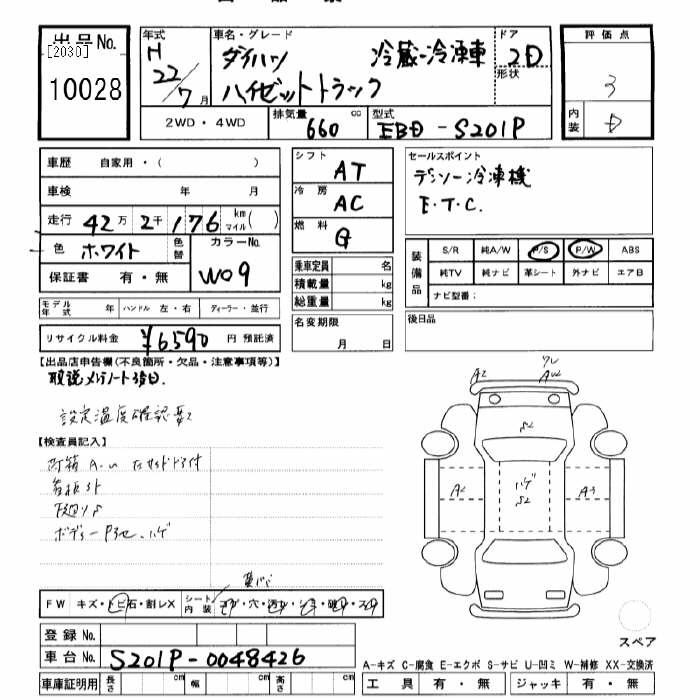 出品No.
[2030]
10028
年式
H
22/7月
車名・グレード
ダイハツ 冷蔵冷凍車
ハイゼットトラック
ドア
2D
形状
評価点
3
内装
D
2WD・4WD
排気量
660 cc
型式
EBD-S201P
車歴 自家用・( )
車検 年 月
走行 42万2千176 km マイル( )
色 ホワイト
色替
カラーNo.
W09
保証書 有・無
モデル年式 年
ハンドル 左・右
ディーラー・並行
リサイクル料金 ¥6590 円 預託済
シフト AT
冷房 AC
燃料 G
乗車定員 名
積載量 kg
総重量 kg
名変期限
月 日
セールスポイント
デンソー冷凍機
E.T.C.
装備品
S/R 純A/W P/S P/W ABS
純TV 純ナビ 革シート 外ナビ エアB
ナビ型番:
後日品
【出品店申告欄(不良箇所・欠品・注意事項等)】
取説メンテノート後日.
設定温度確認要
【検査員記入】
荷箱 A.U
看板跡
下廻りS
ボディーP ハゲ
A2
ワレ
S2
ハゲ
S2
A2
A3
FW キズ・トビ石・割レX
シート内装
コゲ・穴・汚レ・シミ・破レ・スレ
登録No.
車台No. S201P-0048426
スペア
A-キズ C-腐食 E-エクボ S-サビ U-凹ミ W-補修 XX-交換済
車庫証明用 長さ cm 幅 cm 高さ cm
工具 有・無 ジャッキ 有・無